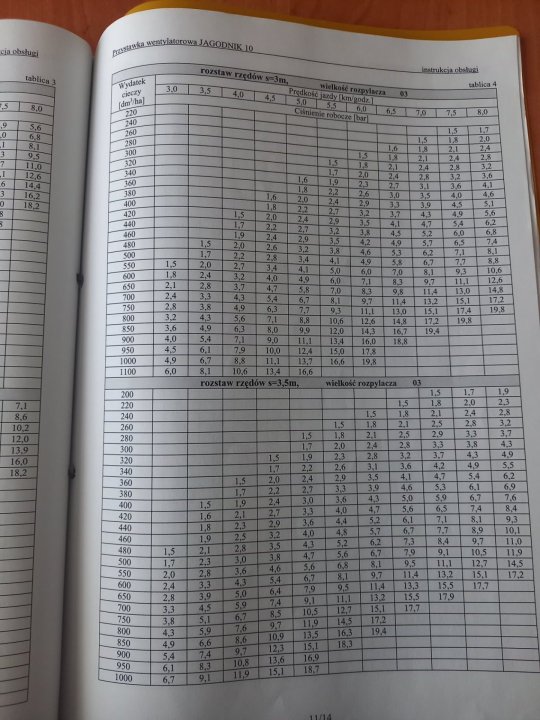 cja obsługi
tablica 3
7,5 8,0
,9 5,6
,0 6,8
,1 8,1
,3 9,5
,7 11,0
,1 12,6
,6 14,4
,3 16,2
,0 18,2
7,1
8,6
10,2
12,0
13,9
16,0
18,2
Przystawka wentylatorowa JAGODNIK 10
instrukcja obsługi
tablica 4
rozstaw rzędów s=3m, wielkość rozpylacza 03
Wydatek cieczy [dm³/ha]
Prędkość jazdy [km/godz.]
3,0 3,5 4,0 4,5 5,0 5,5 6,0 6,5 7,0 7,5 8,0
Ciśnienie robocze [bar]
220 1,5 1,7
240 1,5 1,8 2,0
260 1,6 1,8 2,1 2,4
280 1,5 1,8 2,1 2,4 2,8
300 1,5 1,8 2,1 2,4 2,8 3,2
320 1,7 2,0 2,4 2,8 3,2 3,6
340 1,6 1,9 2,3 2,7 3,1 3,6 4,1
360 1,8 2,2 2,6 3,0 3,5 4,0 4,6
380 1,6 2,0 2,4 2,9 3,3 3,9 4,5 5,1
400 1,8 2,2 2,7 3,2 3,7 4,3 4,9 5,6
420 1,5 2,0 2,4 2,9 3,5 4,1 4,7 5,4 6,2
440 1,7 2,2 2,7 3,2 3,8 4,5 5,2 6,0 6,8
460 1,9 2,4 2,9 3,5 4,2 4,9 5,7 6,5 7,4
480 1,5 2,0 2,6 3,2 3,8 4,6 5,3 6,2 7,1 8,1
500 1,7 2,2 2,8 3,4 4,1 4,9 5,8 6,7 7,7 8,8
550 1,5 2,0 2,7 3,4 4,1 5,0 6,0 7,0 8,1 9,3 10,6
600 1,8 2,4 3,2 4,0 4,9 6,0 7,1 8,3 9,7 11,1 12,6
650 2,1 2,8 3,7 4,7 5,8 7,0 8,3 9,8 11,4 13,0 14,8
700 2,4 3,3 4,3 5,4 6,7 8,1 9,7 11,4 13,2 15,1 17,2
750 2,8 3,8 4,9 6,3 7,7 9,3 11,1 13,0 15,1 17,4 19,8
800 3,2 4,3 5,6 7,1 8,8 10,6 12,6 14,8 17,2 19,8
850 3,6 4,9 6,3 8,0 9,9 12,0 14,3 16,7 19,4
900 4,0 5,4 7,1 9,0 11,1 13,4 16,0 18,8
950 4,5 6,1 7,9 10,0 12,4 15,0 17,8
1000 4,9 6,7 8,8 11,1 13,7 16,6 19,8
1100 6,0 8,1 10,6 13,4 16,6
rozstaw rzędów s=3,5m, wielkość rozpylacza 03
200 1,5 1,7 1,9
220 1,5 1,8 2,0 2,3
240 1,5 1,8 2,1 2,4 2,8
260 1,5 1,8 2,1 2,5 2,8 3,2
280 1,5 1,8 2,1 2,5 2,9 3,3 3,7
300 1,7 2,0 2,4 2,8 3,3 3,8 4,3
320 1,5 1,9 2,3 2,8 3,2 3,7 4,3 4,9
340 1,7 2,2 2,6 3,1 3,6 4,2 4,9 5,5
360 1,5 2,0 2,4 2,9 3,5 4,1 4,7 5,4 6,2
380 1,7 2,2 2,7 3,3 3,9 4,6 5,3 6,1 6,9
400 1,5 1,9 2,4 3,0 3,6 4,3 5,0 5,9 6,7 7,6
420 1,6 2,1 2,7 3,3 4,0 4,7 5,6 6,5 7,4 8,4
440 1,8 2,3 2,9 3,6 4,4 5,2 6,1 7,1 8,1 9,3
460 1,9 2,5 3,2 4,0 4,8 5,7 6,7 7,7 8,9 10,1
480 1,5 2,1 2,8 3,5 4,3 5,2 6,2 7,3 8,4 9,7 11,0
500 1,7 2,3 3,0 3,8 4,7 5,6 6,7 7,9 9,1 10,5 11,9
550 2,0 2,8 3,6 4,6 5,6 6,8 8,1 9,5 11,1 12,7 14,5
600 2,4 3,3 4,3 5,4 6,7 8,1 9,7 11,4 13,2 15,1 17,2
650 2,8 3,9 5,0 6,4 7,9 9,5 11,4 13,3 15,5 17,7
700 3,3 4,5 5,9 7,4 9,1 11,1 13,2 15,5 17,9
750 3,8 5,1 6,7 8,5 10,5 12,7 15,1 17,7
800 4,3 5,9 7,6 9,7 11,9 14,5 17,2
850 4,9 6,6 8,6 10,9 13,5 16,3 19,4
900 5,4 7,4 9,7 12,3 15,1 18,3
950 6,1 8,3 10,8 13,6 16,9
1000 6,7 9,1 11,9 15,1 18,7
11/14